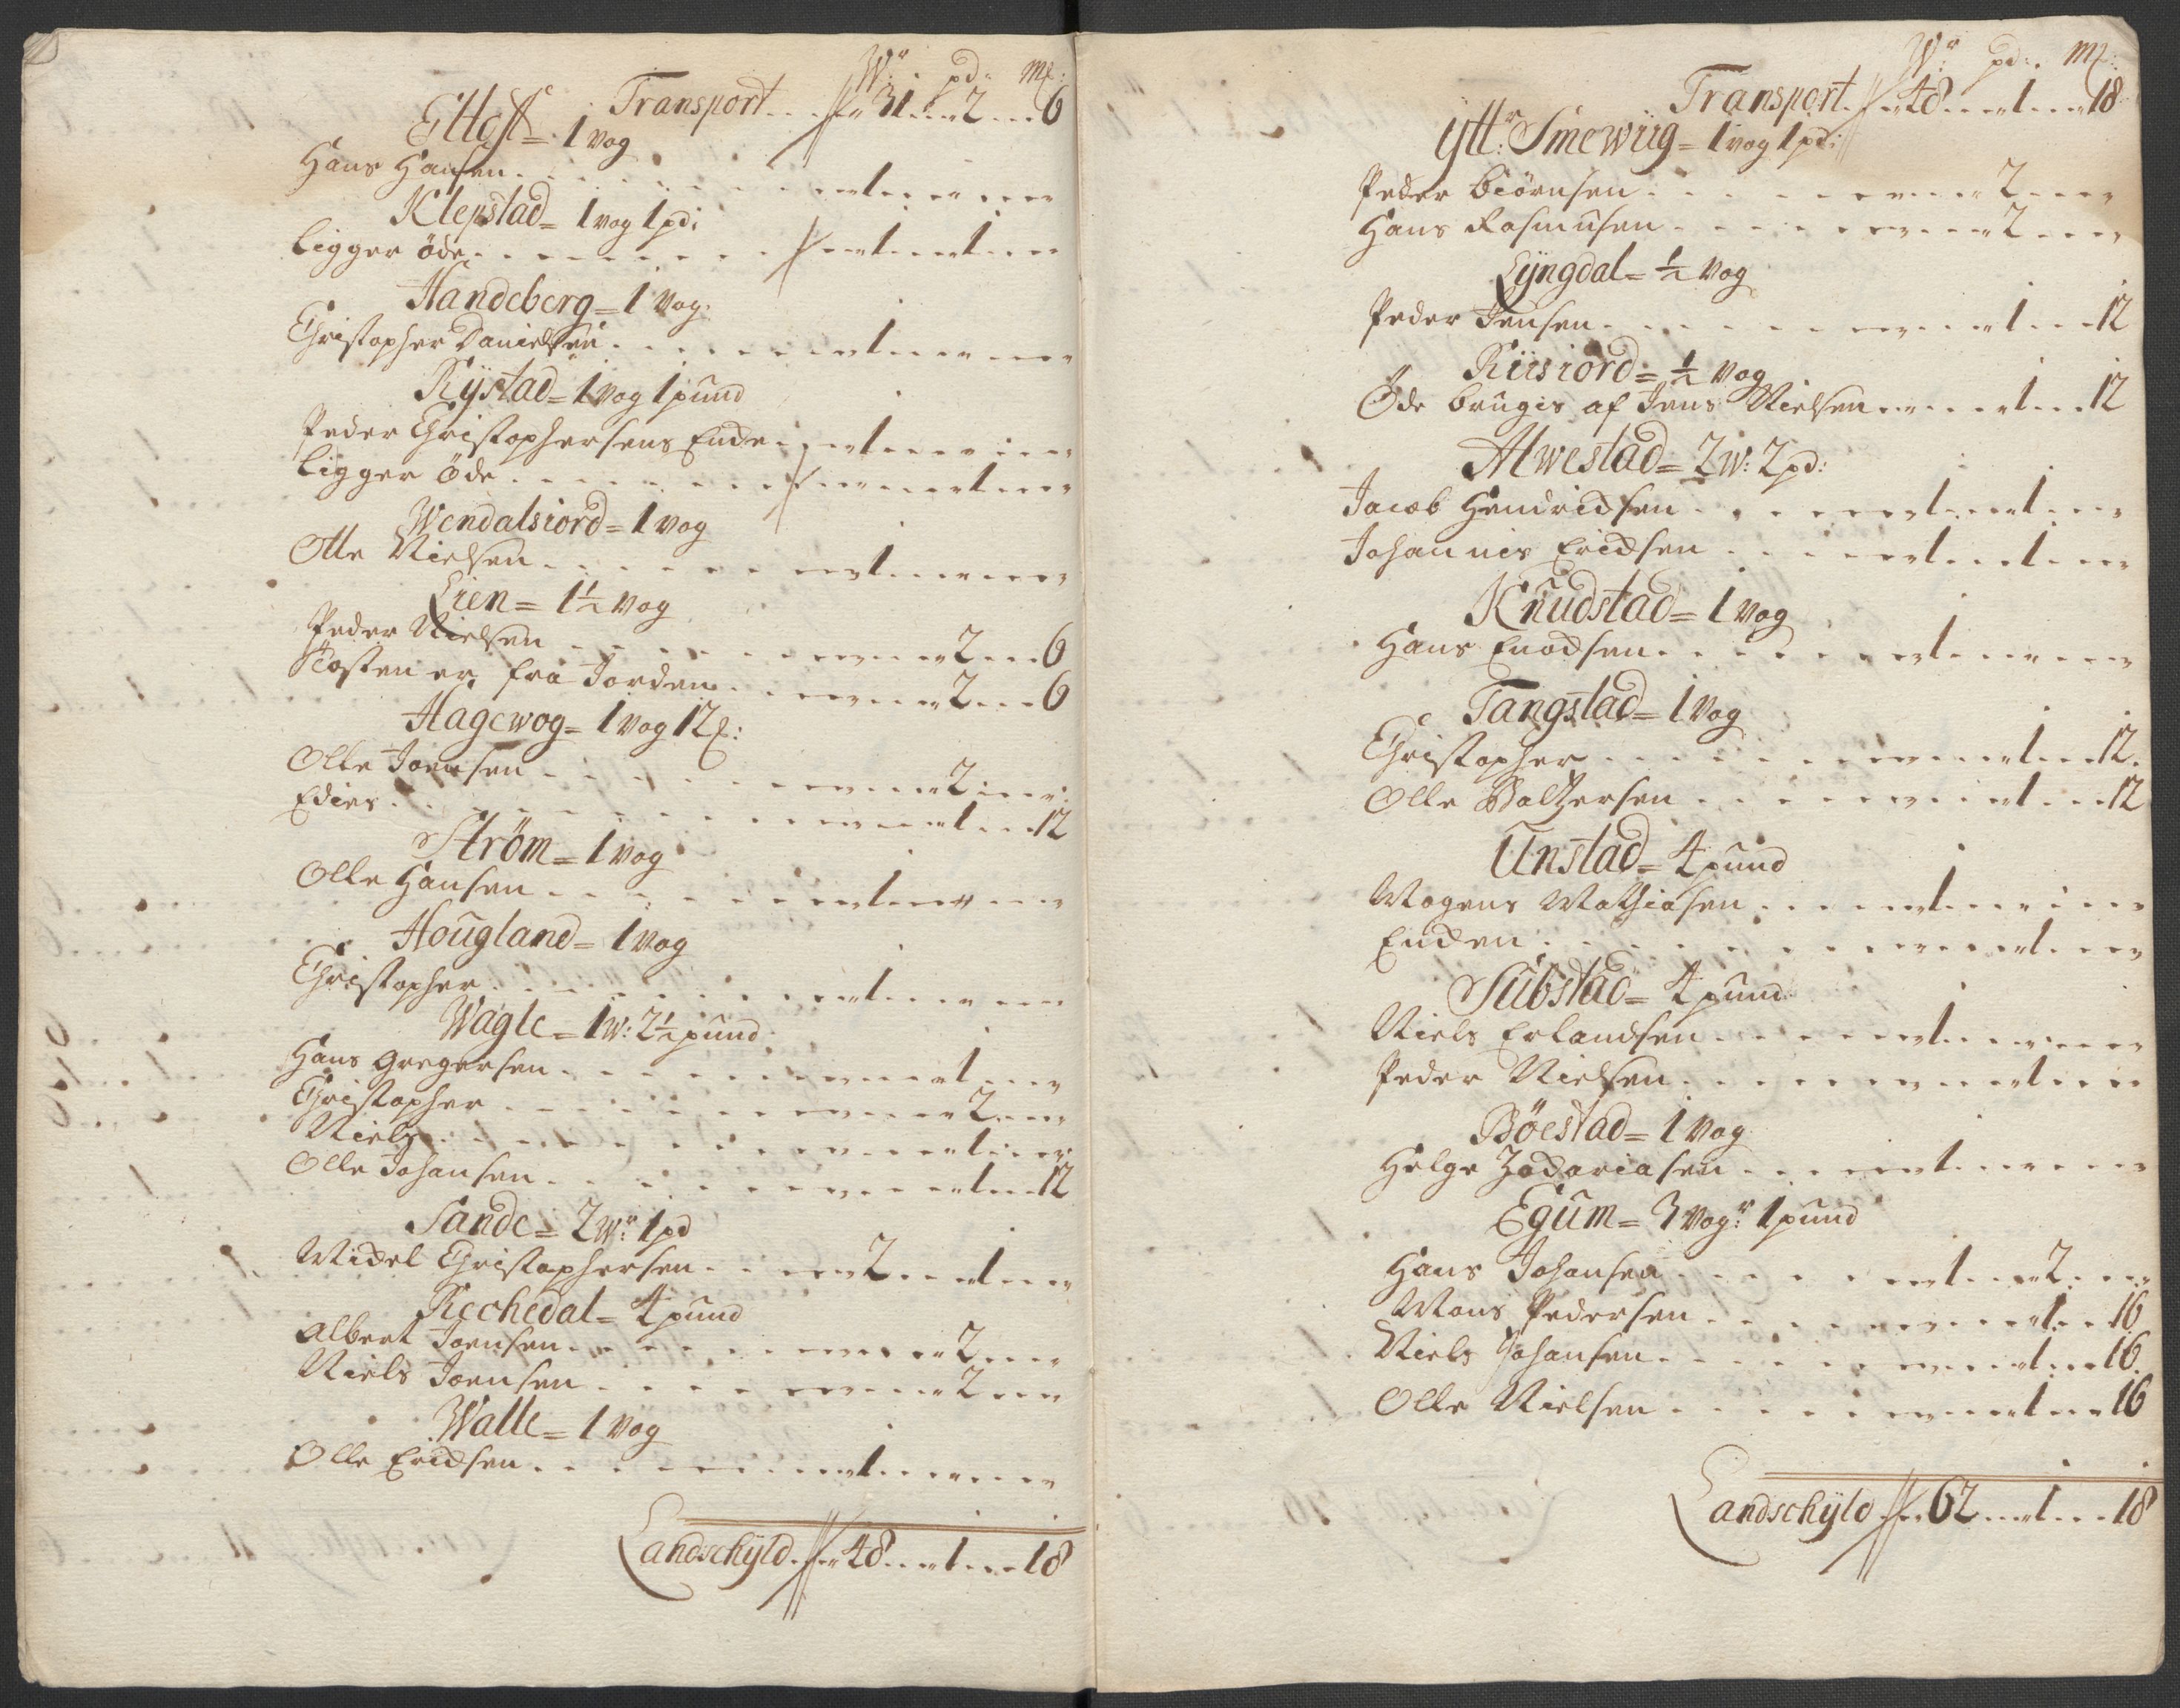 Wr: pd: mk:
Transport 31 2 6
Ettøff = 1 vog
Hans Hansen 1
Klepstad = 1 vog 1 pd:
Ligger öde 1 1
Handeberg = 1 Vog:
Christopher Danielsen 1
Rÿstad = 1 vog 1 pund
Peder Christophersens Enke 1
Ligger öde 1
Wendalsiord = 1 vog
Otte Nielsen 1
Lien = 1½ vog
Peder Nielsen 2 6
fra Jorden 2 6
Hagewog = 1 vog 12
Olle Joensen 2
Edies 1 12
Ström = 1 vog
Olle Hansen 1
Hougland = 1 vog
Christopher 1
Wagle = 1 W: 2½ pund
Hans Gregersen 1
Christopher 2
Nielß 1
Olle Johansen 1 12
Sande = 2 Wr 1 pd
Mickel Christophersen 2 1
Rechedal = 4 pund
Albert Joensen 2
Niels Joensen 2
Walle = 1 vog
Olle Ericksen 1
Landschÿld 48 1 18
Wr: pd: mk:
Transport 48 1 18
Ytt: Smewiig = 1 vog 1 pd:
Peder Biörnsen 2
Hans Rasmusen 2
Lÿngdal = ½ vog
Peder Jensen 1 12
Riisiord = ½ vog
Öde brugis af Jens Nielsen 1 12
Alwestad = 2 W: 2 pd:
Jacob Hendricksen 1 1
Johannis Ericksen 1 1
Knudstad = 1 vog
Hans Enocksen 1
Tangstad = 1 Vog
Christopher 1 12
Olle Baltzersen 1 12
Unstad = 4 pund
Mogens Mathiasen 1
Enken 1
Substad = 4 pund
Niels Erlandsen 1
Peder Nielsen 1
Böestad = 1 Vog
Helge Zackariasen 1
Egum = 3 Vogr: 1 pund
Hans Johansen 1 2
Mons Pedersen 1 16
Niels Johansen 1 16
Olle Nielsen 1 16
Landschÿld 62 1 18